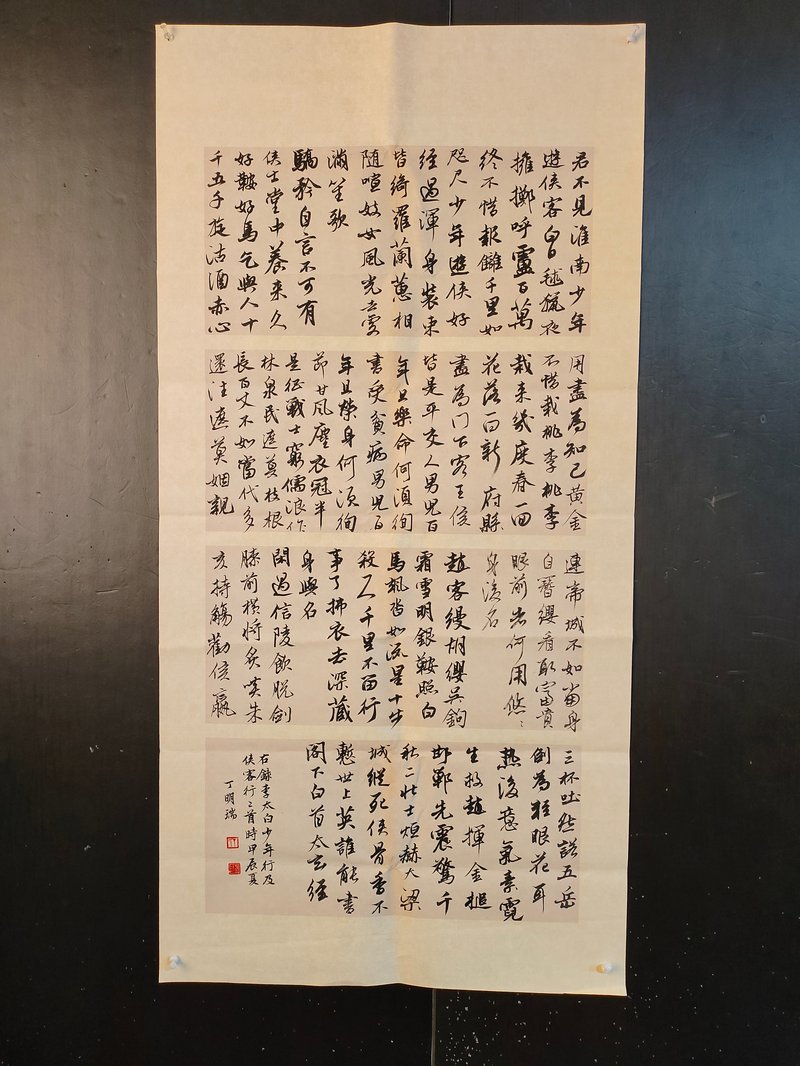 君不見淮南少年
遊俠客白日毬獵夜
擁擲呼盧百萬
終不惜報讎千里如
咫尺少年遊俠好
經過渾身裝束
皆綺羅蘭蕙相
隨喧妓女風光去處
滿笙歌
驕矜自言不可有
俠士堂中養來久
好鞍好馬乞與人十
千五千旋沽酒赤心
用盡為知己黃金
不惜栽桃李桃李
栽來幾度春一回
花落一回新府縣
盡為門下客王侯
皆是平交人男兒百
年且樂命何須徇
書受貧病男兒百
年且榮身何須徇
節甘風塵衣冠半
是征戰士窮儒浪作
林泉民遮莫枝根
長百丈不如當代多
還往遮莫姻親
連帝城不如當身
自簪纓看取富貴
眼前者何用悠〻
身後名
趙客縵胡纓吳鉤
霜雪明銀鞍照白
馬颯沓如流星十步
殺一人千里不留行
事了拂衣去深藏
身與名
閑過信陵飲脫劍
膝前橫將炙啖朱
亥持觴勸侯嬴
三杯吐然諾五岳
倒為輕眼花耳
熱後意氣素霓
生救趙揮金槌
邯鄲先震驚千
秋二壯士烜赫大梁
城縱死俠骨香不
慙世上英誰能書
閣下白首太玄經
右錄李太白少年行及
俠客行二首時甲辰夏
丁明瑞